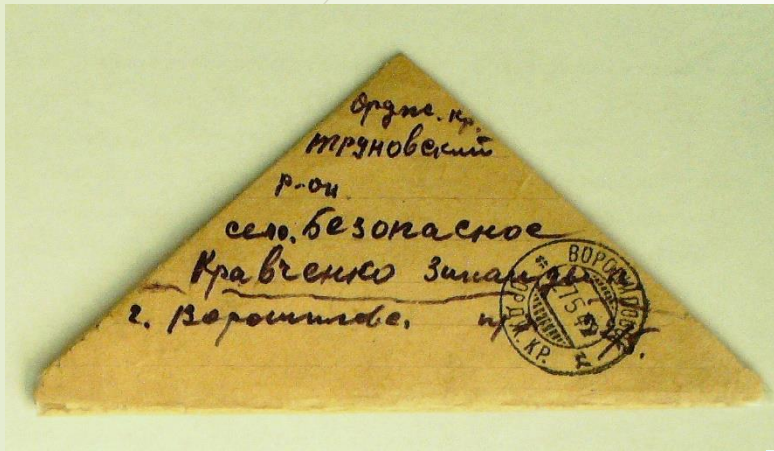 Ордж. кр.
Труновский
р-он
село. Безопасное
Кравченко Зинаиды
г. Ворошиловс.
ОРДЖ. КР.